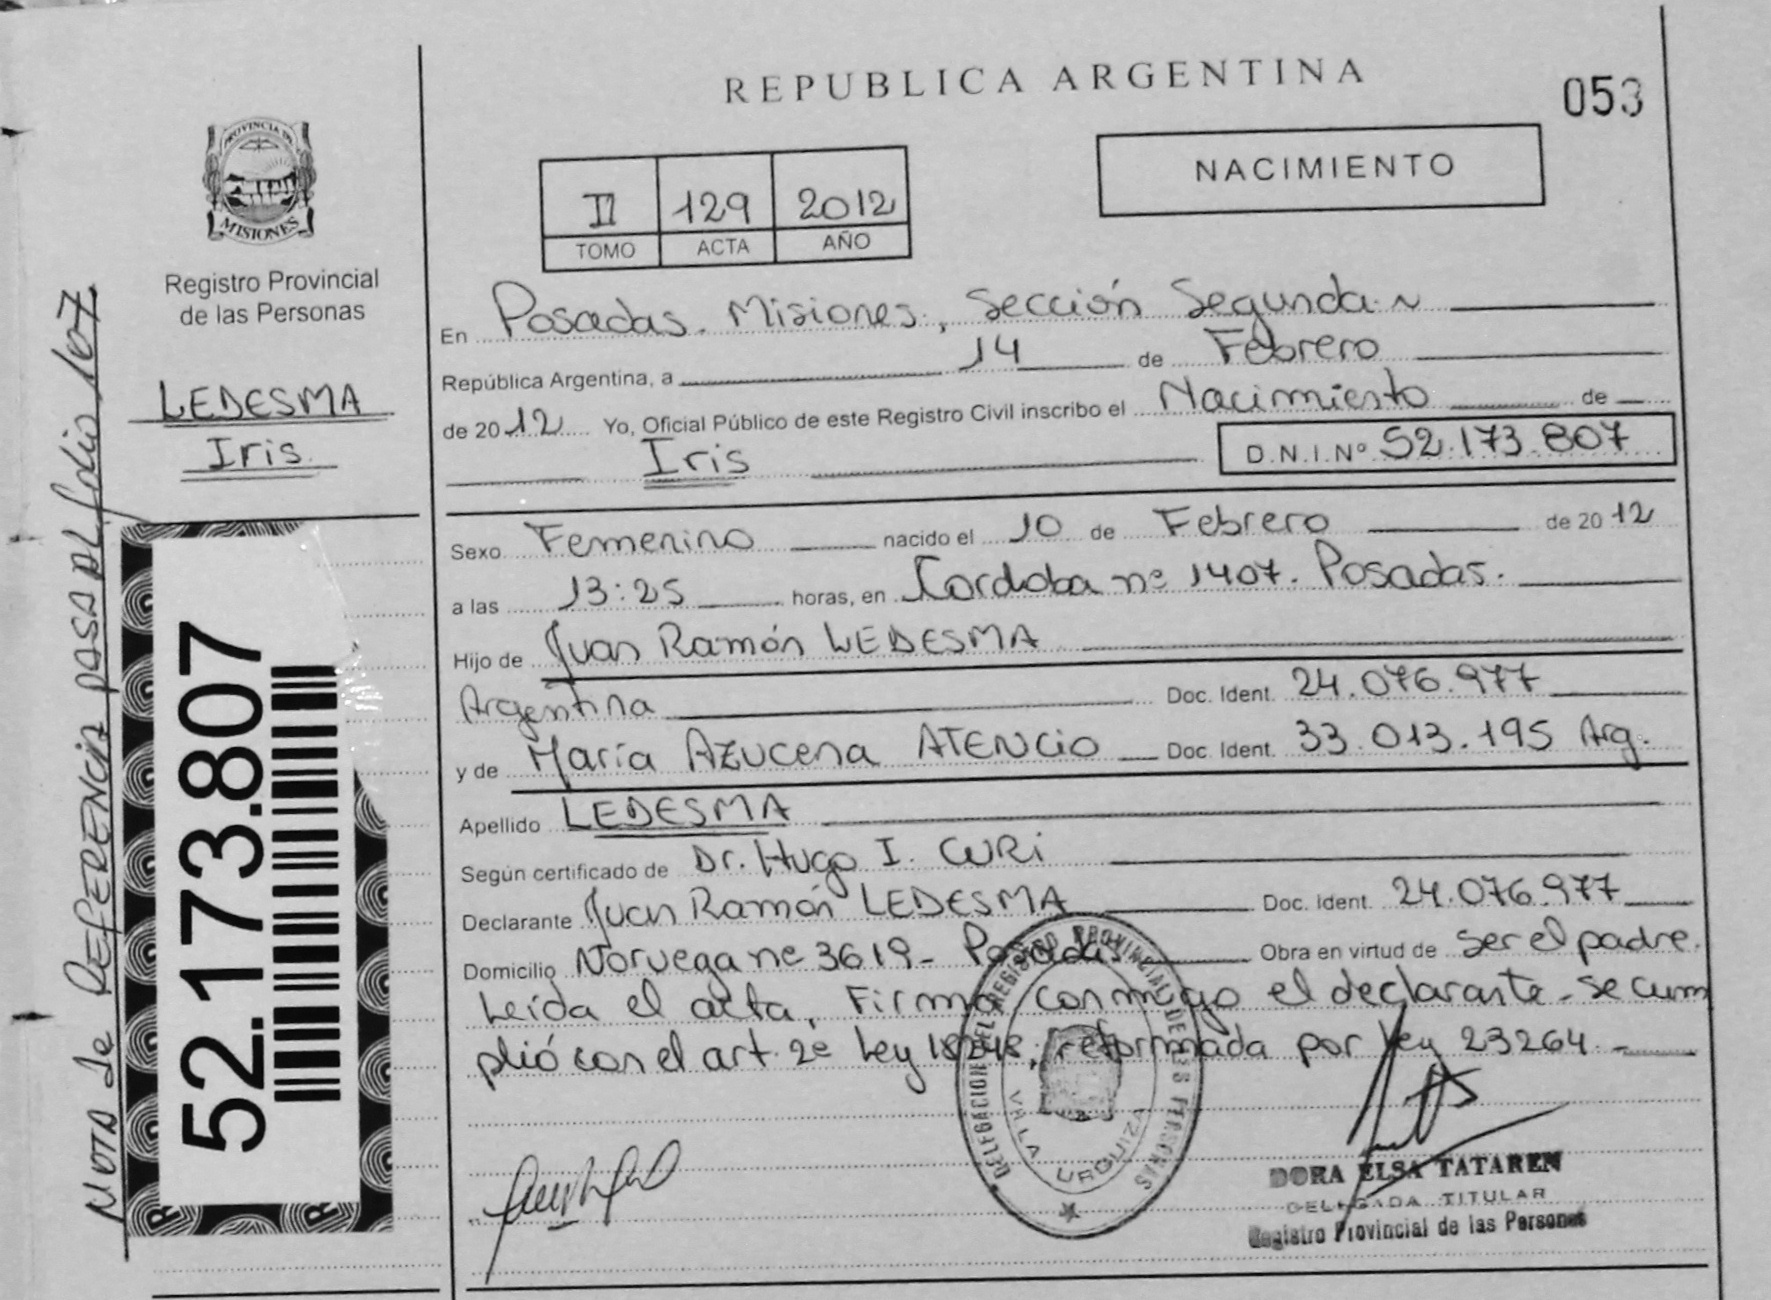 REPUBLICA ARGENTINA
053
NACIMIENTO
II 129 2012
TOMO ACTA AÑO
PROVINCIA DE
MISIONES
Registro Provincial
de las Personas
LEDESMA
Iris
Nota de REFERENCIA pasa al folio 107
52.173.807
En Posadas. Misiones, Sección Segunda
República Argentina, a 14 de Febrero
de 2012 Yo, Oficial Público de este Registro Civil inscribo el Nacimiento de
Iris D.N.I.Nº 52.173.807
Sexo Femenino nacido el 10 de Febrero de 2012
a las 13:25 horas, en Cordoba nº 1407. Posadas.
Hijo de Juan Ramón LEDESMA
Argentina Doc. Ident. 24.076.977
y de María Azucena ATENCIO Doc. Ident. 33.013.195 Arg.
Apellido LEDESMA
Según certificado de Dr. Hugo I. CURi
Declarante Juan Ramón LEDESMA Doc. Ident. 24.076.977
Domicilio Noruega nº 3619- Posadas Obra en virtud de ser el padre.
Leída el acta, Firma conmigo el declarante - se cum
plió con el art. 2º Ley 18248, reformada por Ley 23264 -
DELEGACION DEL REGISTRO PROVINCIAL DE LAS PERSONAS
VILLA URQUIZA
DORA ELSA TATAREN
DELEGADA TITULAR
Registro Provincial de las Personas